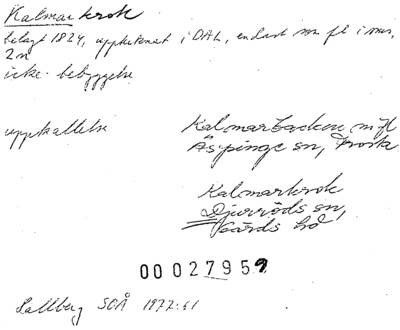 Kalmarkrok
belagt 1824, uppkallat i DAL, endast som fl i mus,
2 n
icke-bebyggelse
uppkallelse
Kalmarbacken m fl
Äspinge sn, Frosta
Kalmarkrok
Djurröds sn,
Gärds hd
00027959
Hallberg SOÅ 1977:61